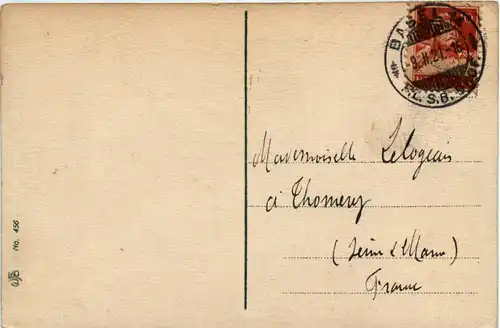 BASEL
9.II.21.-16
S.B.Bhof.
Mademoiselle Lelogeais
à Thomery
(Seine & Marne)
France
No. 456